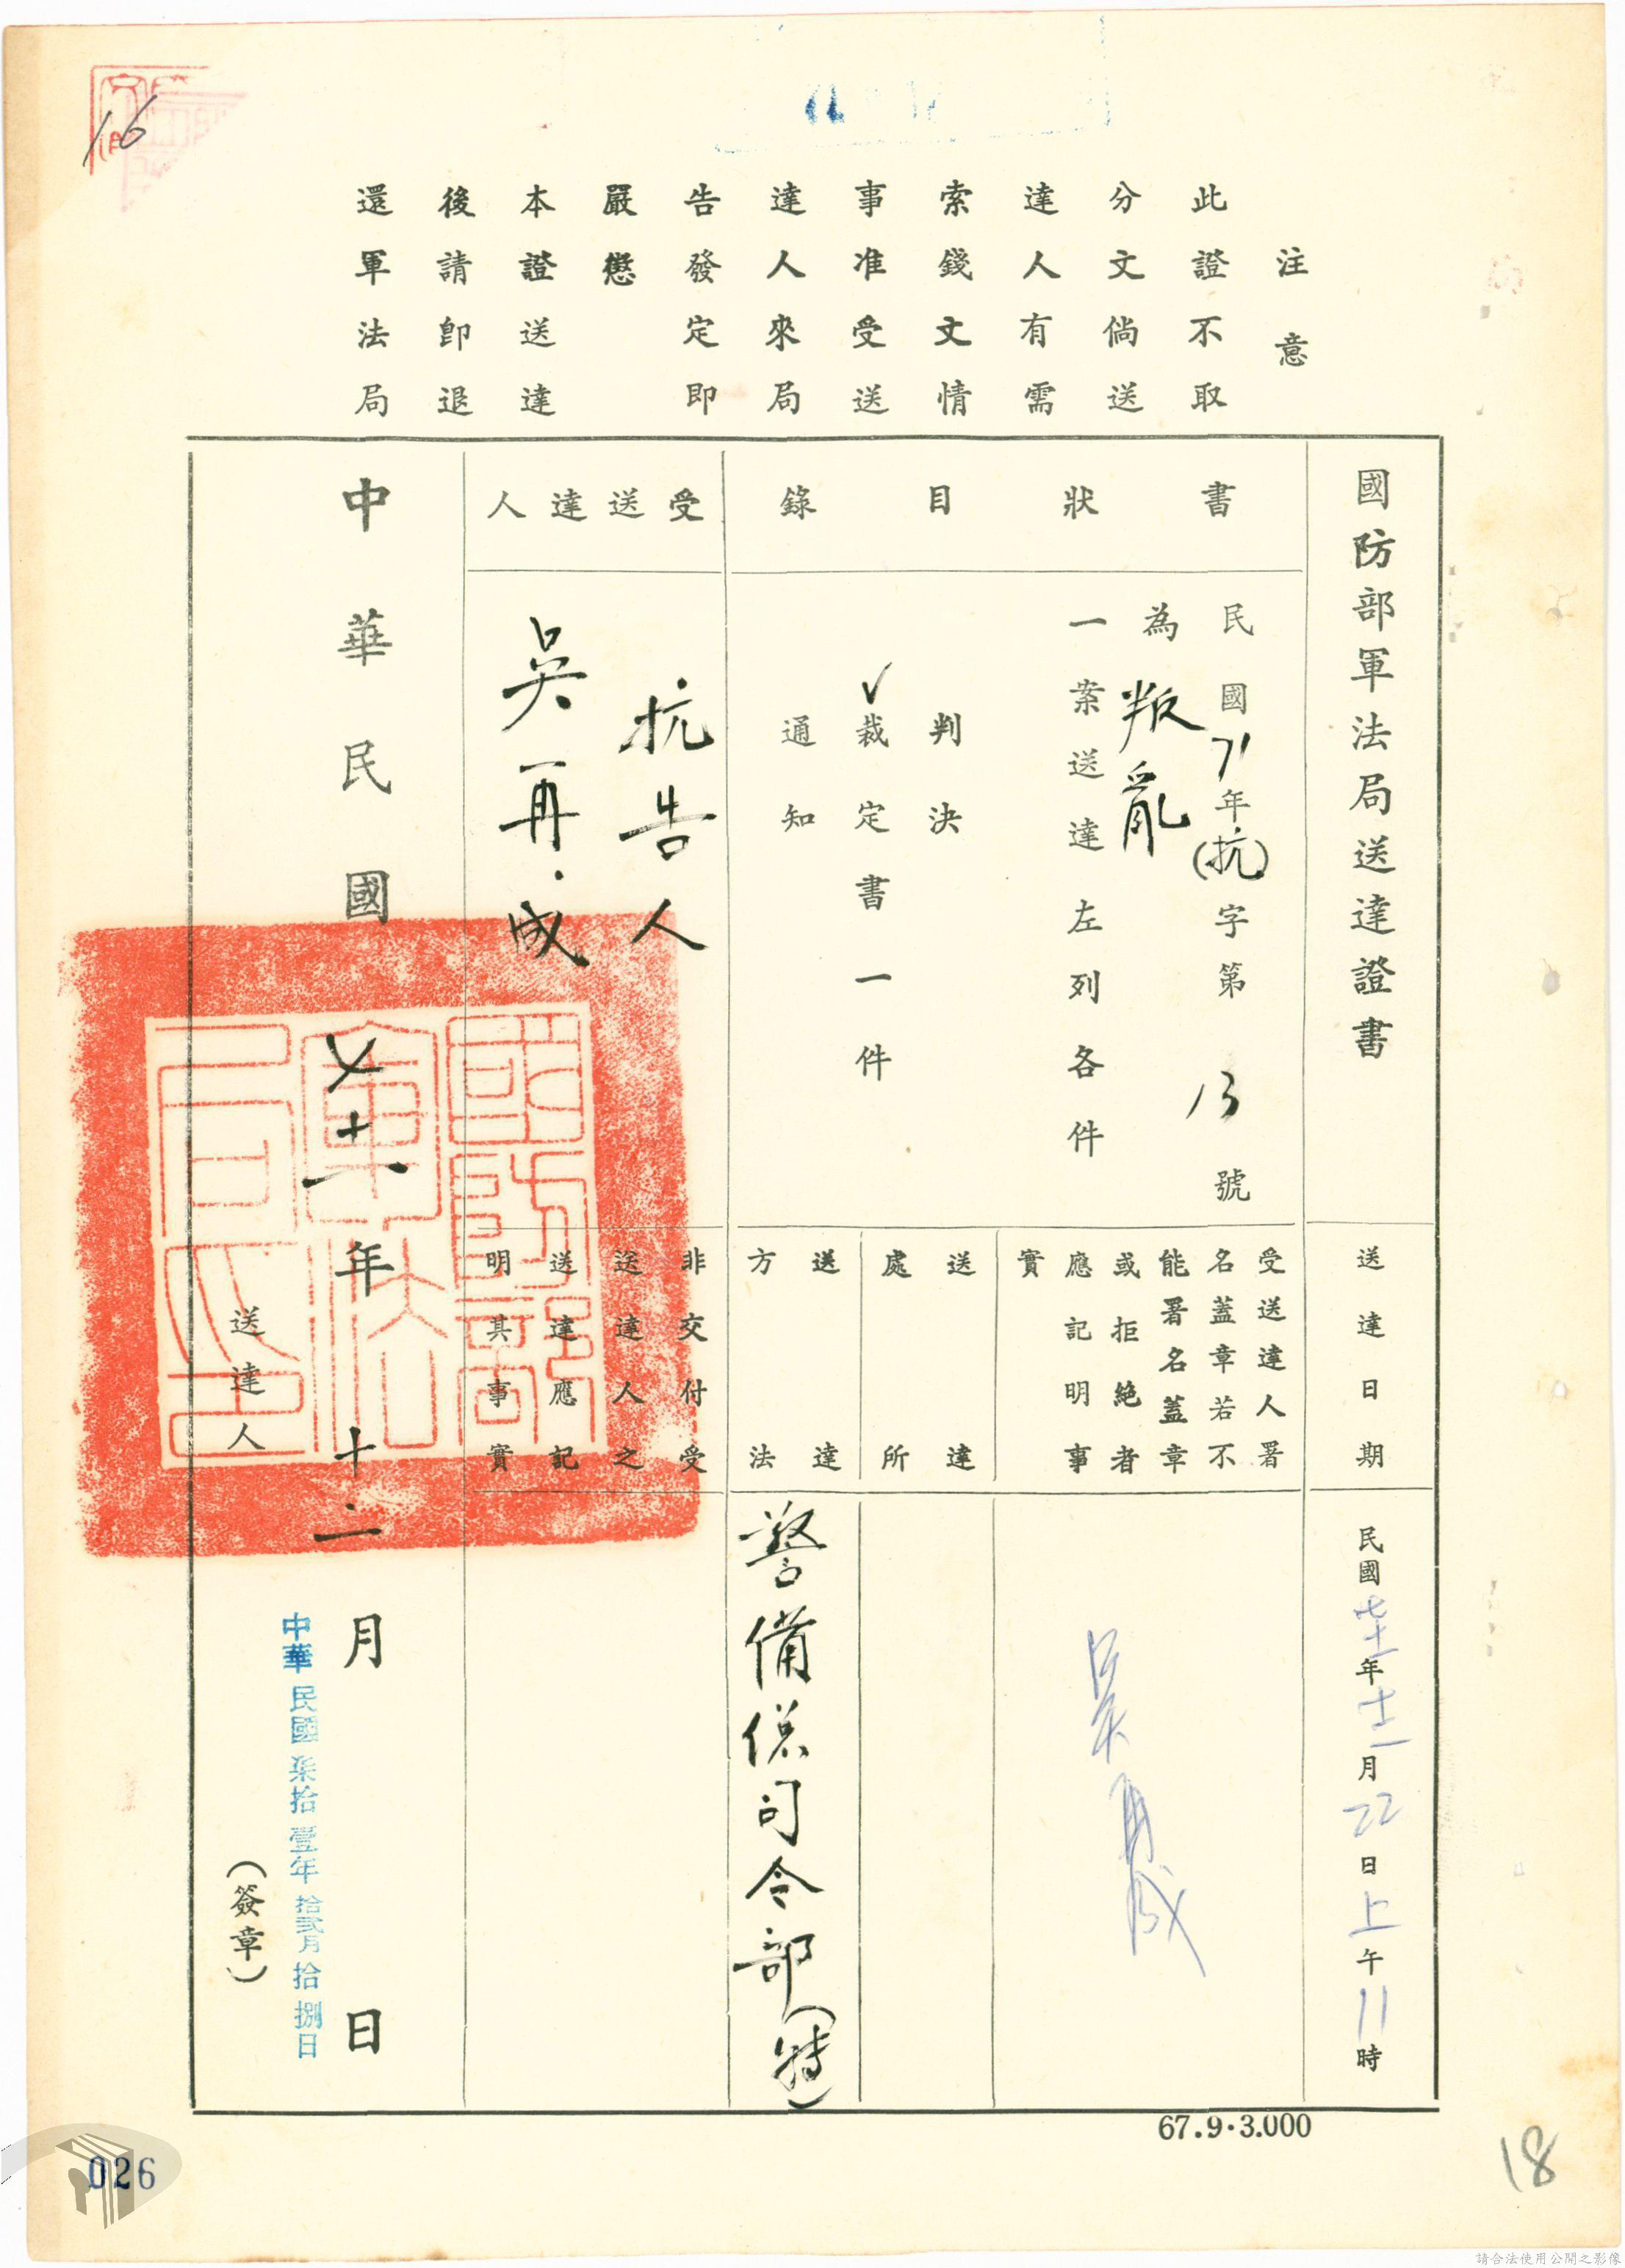 16
注意
此證不取
分文倘送
達人有需
索錢文情
事准受送
達人來局
告發定即
嚴懲
本證送達
後請卽退
還軍法局
國防部軍法局送達證書
書狀目錄
民國71年(抗)字第13號
為叛亂
一案送達左列各件
判決
✓裁定書一件
通知
受送達人
抗告人
吳再成
送達日期
民國七十一年十二月22日上午11時
受送達人署
名蓋章若不
能署名蓋章
或拒絕者
應記明事
實
吳再成
送達
處所
送達
方法
警備總司令部(特)
非交付受
送達人之
送達應記
明其事實
中華民國七十一年十二月日
國防部
軍法
局印
中華民國柒拾壹年拾貳月拾捌日
送達人
(簽章)
67.9·3.000
026
18
請合法使用公開之影像